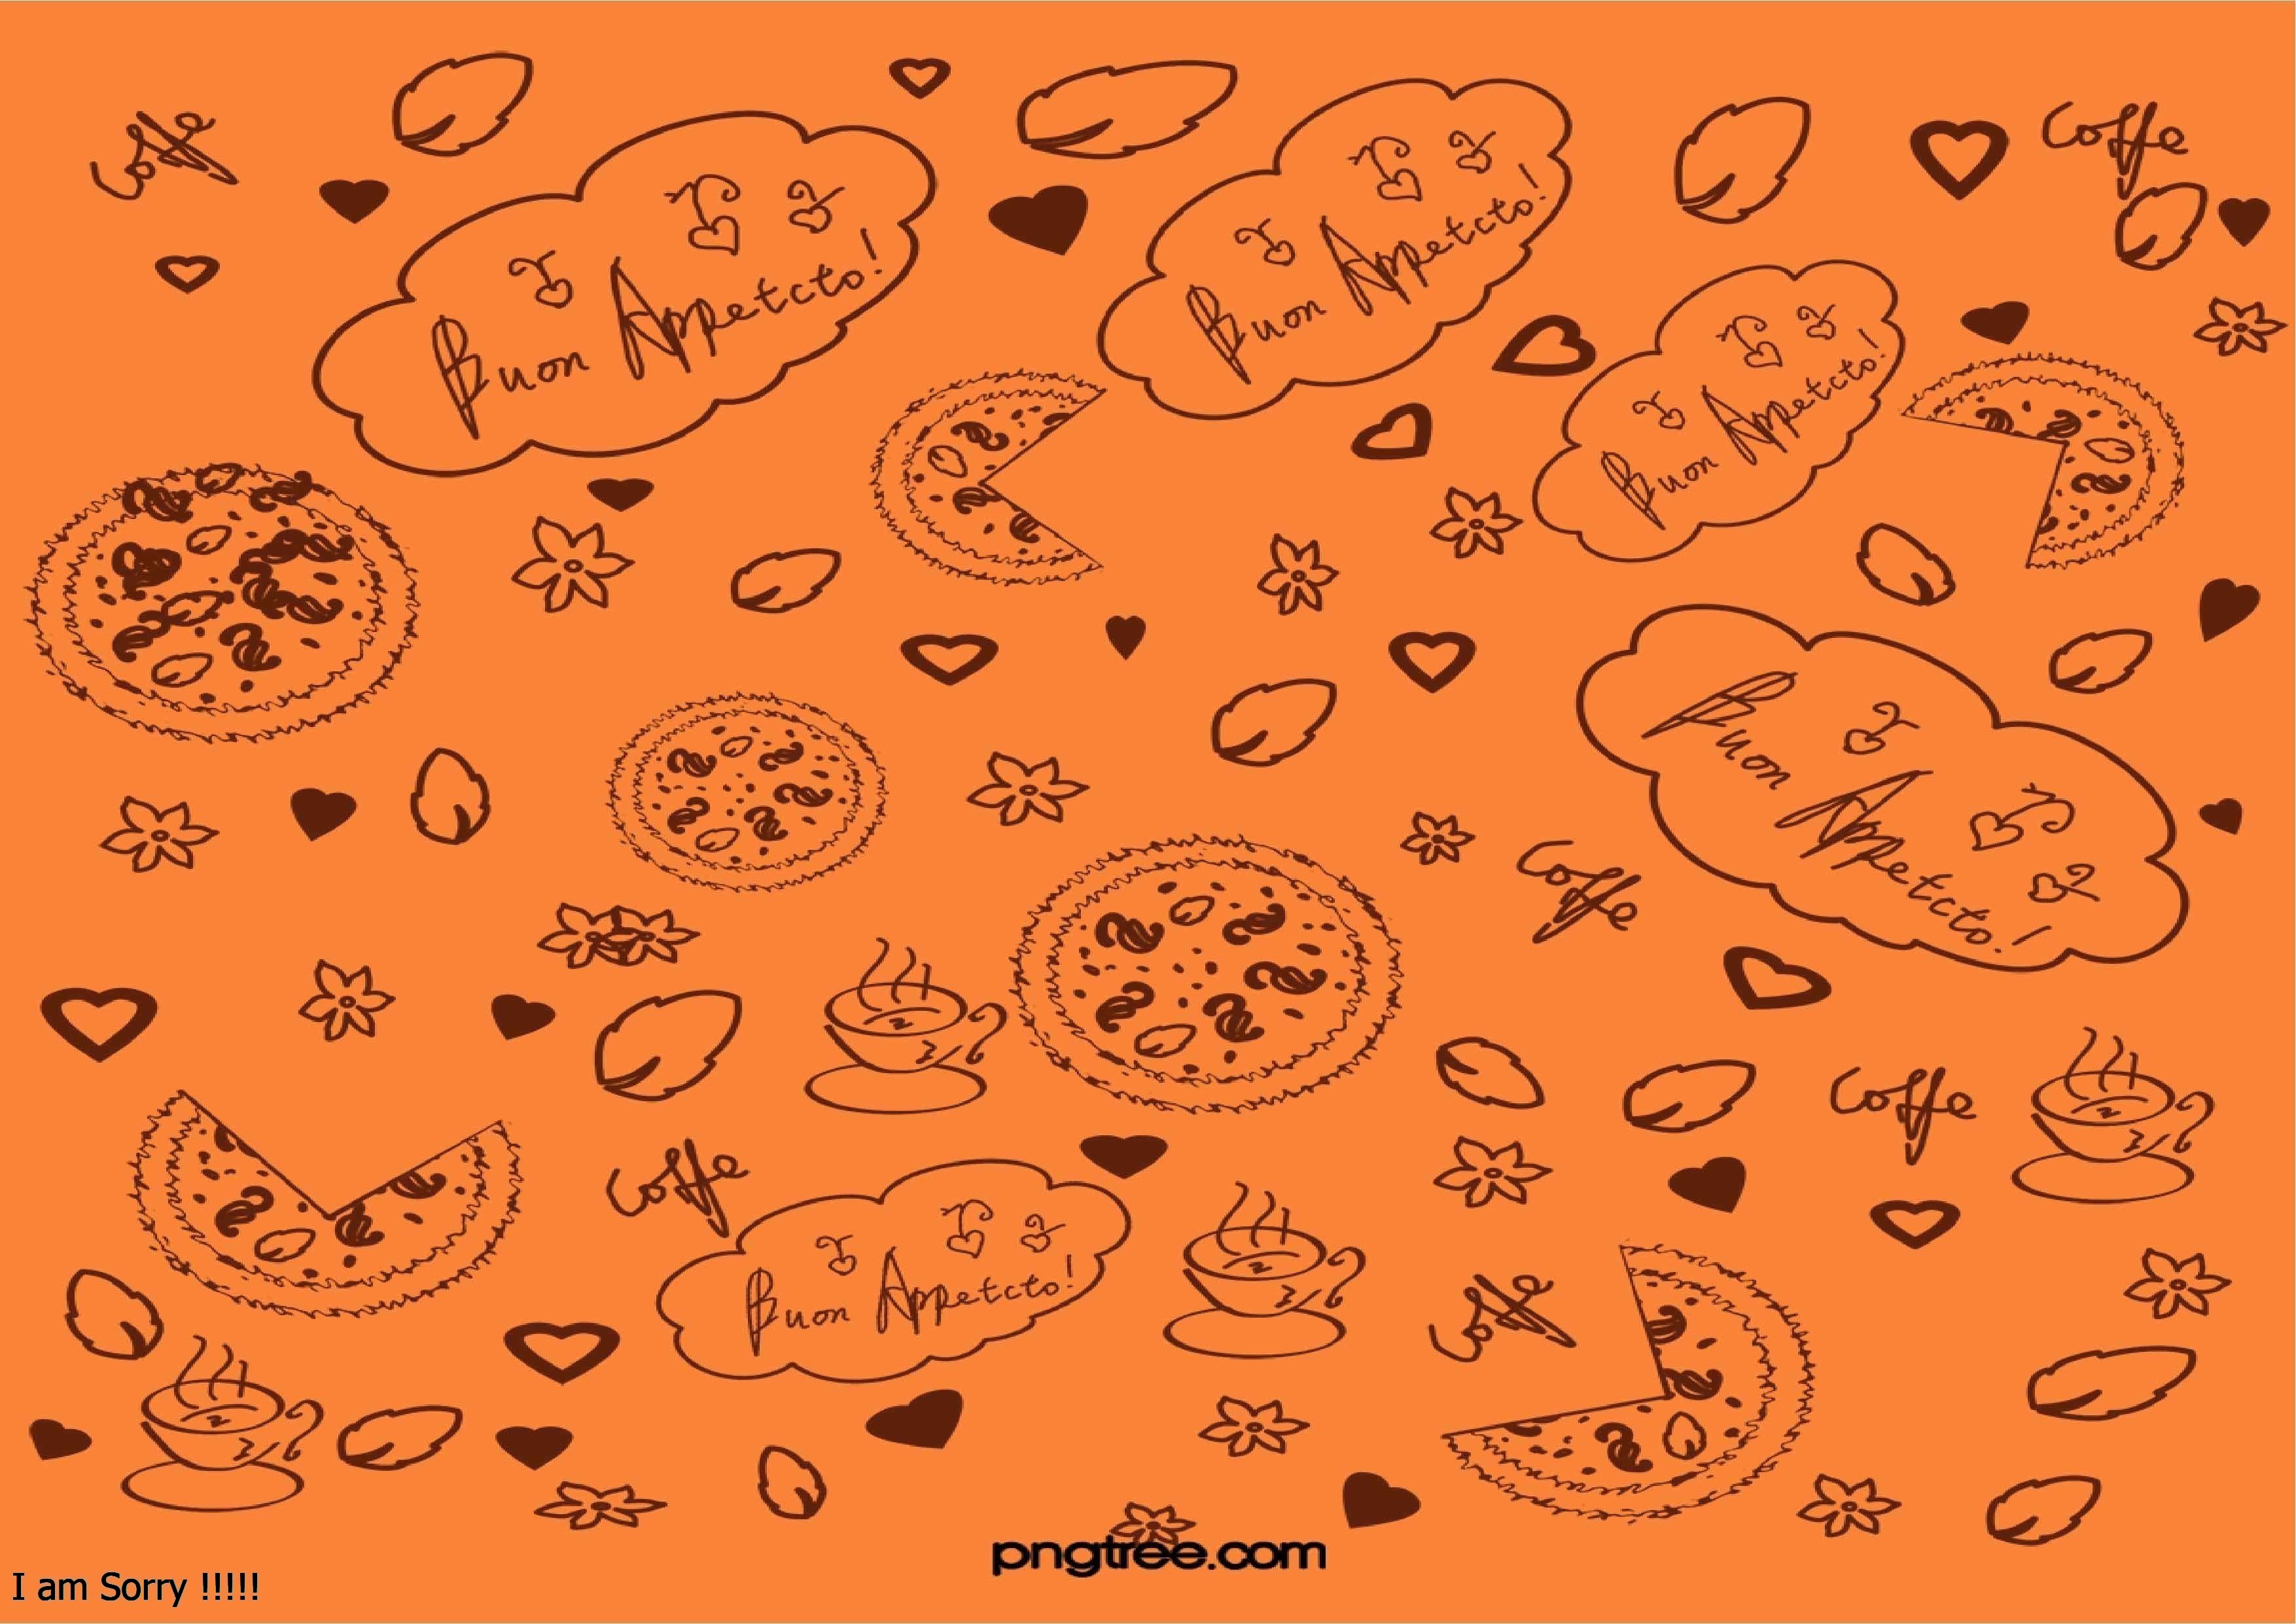 Coffe
Coffe
Buon Appetcto!
Buon Appetcto!
Buon Appetcto!
Buon Appetcto!
Coffe
Coffe
Coffe
Buon Appetcto!
Coffe
pngtree.com
I am Sorry !!!!!